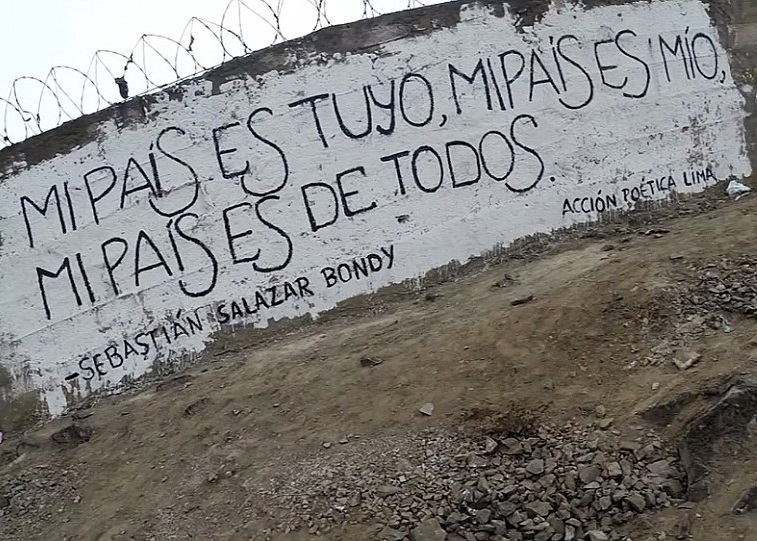 MI PAÍS ES TUYO, MI PAÍS ES MÍO,
MI PAÍS ES DE TODOS.
-SEBASTIÁN SALAZAR BONDY
ACCIÓN POÉTICA LIMA